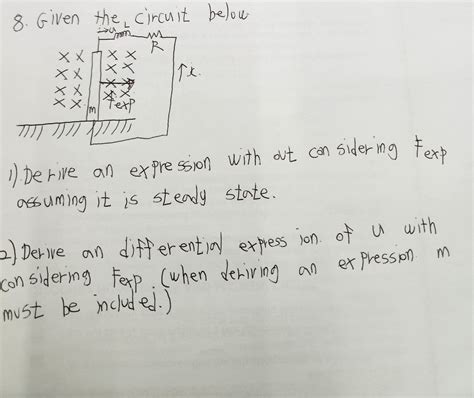 8. Given the circuit below
→u L
R
x x x x
x x x x
x x x x
x x x x
↑i.
m Fexp
1) Derive an expression with out con sidering Fexp
assuming it is steady state.
2) Derive an differential express ion of u with
con sidering Fexp. (when deriving an expression m
must be included.)